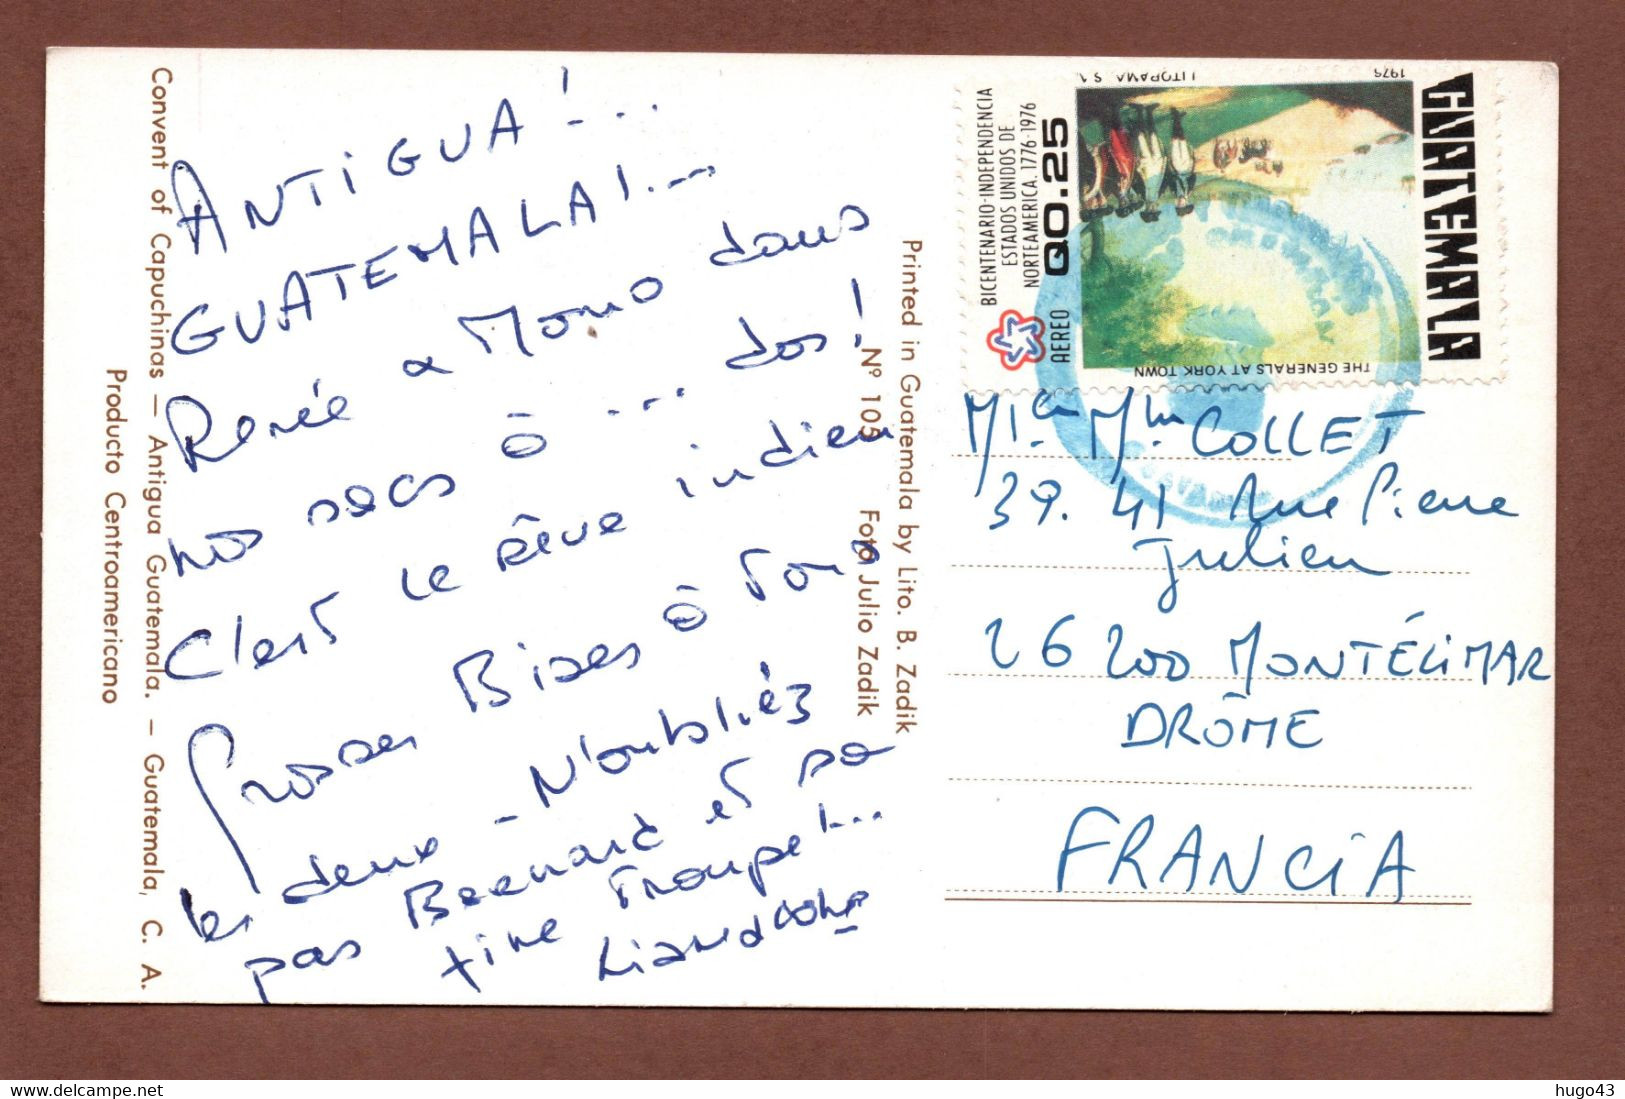 Convent of Capuchinas — Antigua Guatemala. — Guatemala, C. A.
Producto Centroamericano
ANTIGUA!...
GUATEMALA!...
Renée & Momo dans
nos sacs à ... dos!
C'est le rêve indien
Grosses Bises à Tous
les deux - N'oubliéz
pas Bernard et sa
Troupe!...
Printed in Guatemala by Lito. B. Zadik
Nº 105 Foto Julio Zadik
BICENTENARIO-INDEPENDENCIA
ESTADOS UNIDOS DE
NORTEAMERICA 1776-1976
AEREO Q0.25
LITOPAMA S.A. 1976
THE GENERALS AT YORK TOWN
GUATEMALA
COLLET
39. 41 Rue Pierre
Julien
26200 MONTÉLIMAR
DRÔME
FRANCIA
hugo43